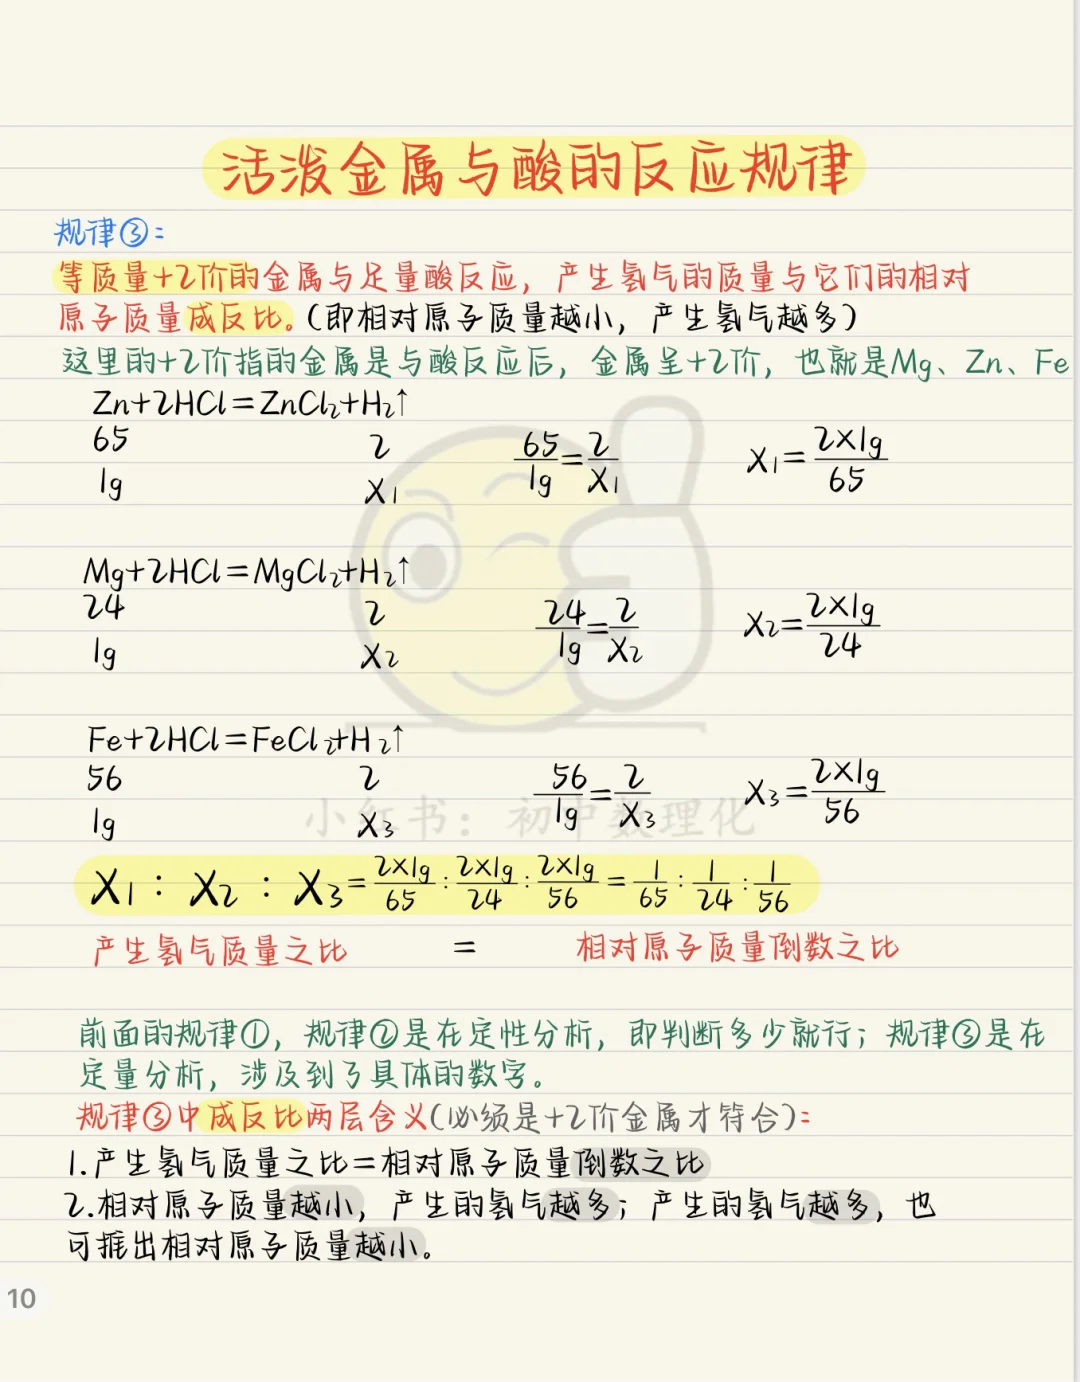 活泼金属与酸的反应规律
规律③:
等质量+2价的金属与足量酸反应，产生氢气的质量与它们的相对
原子质量成反比。(即相对原子质量越小，产生氢气越多)
这里的+2价指的金属是与酸反应后，金属呈+2价，也就是Mg、Zn、Fe
Zn+2HCl=ZnCl₂+H₂↑
65 2 65/1g=2/X₁ X₁=2×1g/65
1g X₁
Mg+2HCl=MgCl₂+H₂↑
24 2 24/1g=2/X₂ X₂=2×1g/24
1g X₂
Fe+2HCl=FeCl₂+H₂↑
56 2 56/1g=2/X₃ X₃=2×1g/56
1g X₃
小红书：初中数理化
X₁:X₂:X₃=2×1g/65:2×1g/24:2×1g/56=1/65:1/24:1/56
产生氢气质量之比 = 相对原子质量倒数之比
前面的规律①，规律②是在定性分析，即判断多少就行；规律③是在
定量分析，涉及到了具体的数字。
规律③中成反比两层含义(必须是+2价金属才符合):
1.产生氢气质量之比=相对原子质量倒数之比
2.相对原子质量越小，产生的氢气越多；产生的氢气越多，也
可推出相对原子质量越小。
10